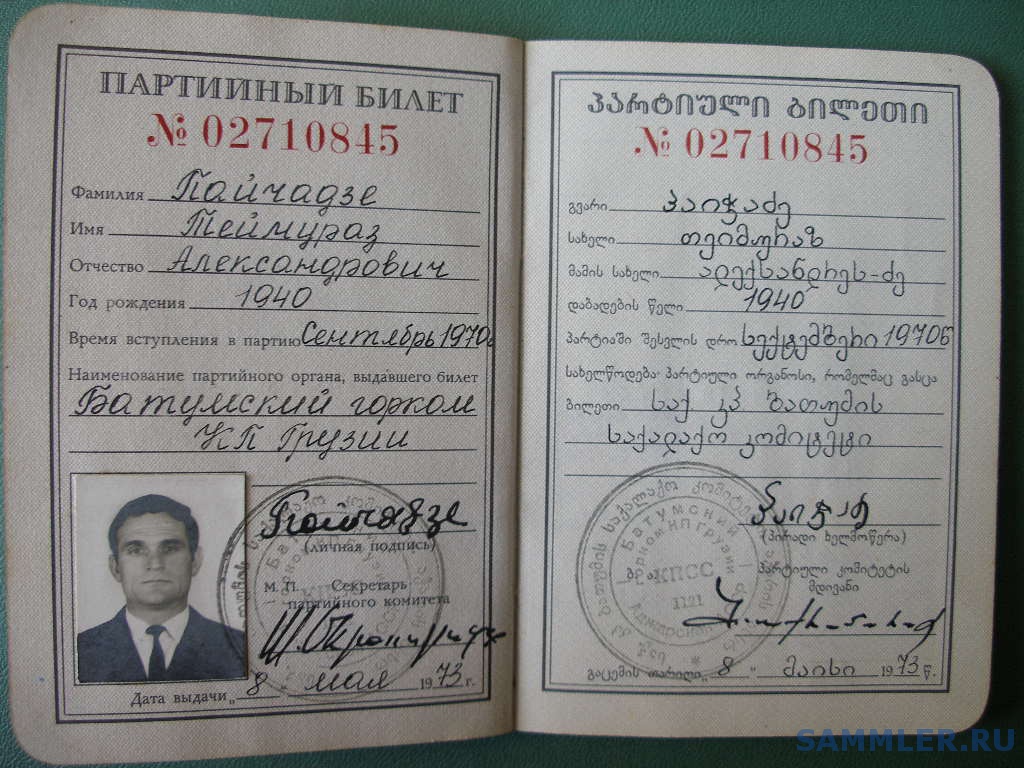 ПАРТИЙНЫЙ БИЛЕТ
№ 02710845
Фамилия Пайчадзе
Имя Теймураз
Отчество Александрович
Год рождения 1940
Время вступления в партию Сентябрь 1970г
Наименование партийного органа, выдавшего билет
Батумский горком
КП Грузии
Пайчадзе
(личная подпись)
М. П. Секретарь
партийного комитета
Дата выдачи „8 “ мая 1973 г.
პარტიული ბილეთი
№ 02710845
გვარი პაიჭაძე
სახელი თეიმურაზ
მამის სახელი ალექსანდრეს-ძე
დაბადების წელი 1940
პარტიაში შესვლის დრო სექტემბერი 1970წ
სახელწოდება პარტიული ორგანოსი, რომელმაც გასცა
ბილეთი საქ კპ ბათუმის
საქალაქო კომიტეტი
(პირადი ხელმოწერა)
ბ. ა. პარტიული კომიტეტის
მდივანი
КПСС
1121
Батумский
გაცემის თარიღი „8 “ მაისი 1973 წ.
SAMMLER.RU